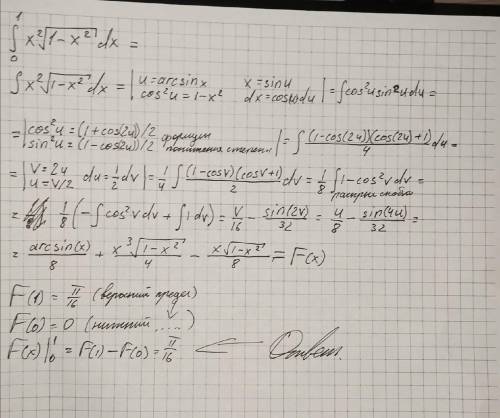 ∫₀¹ x²√(1-x²) dx =
∫ x²√(1-x²) dx = | u = arcsin x   x = sin u   cos²u = 1-x²   dx = cos(u) du | = ∫ cos²u sin²u du =
= | cos²u = (1+cos(2u))/2   sin²u = (1-cos(2u))/2   формулы понижения степени | = ∫ (1-cos(2u))(cos(2u)+1)/4 du =
= | V = 2u   u = V/2   du = 1/2 dV | = 1/4 ∫ (1-cos V)(cos V+1)/2 dV = 1/8 ∫ 1-cos²V dV = раскрыл скобки
= 1/8 (-∫ cos²V dV + ∫ 1 dV) = V/16 - sin(2V)/32 = u/8 - sin(4u)/32 =
= arcsin(x)/8 + x³√(1-x²)/4 - x√(1-x²)/8 = F(x)
F(1) = π/16 (верхний предел)
F(0) = 0 (нижний ....)
F(x)|₀¹ = F(1) - F(0) = π/16 ← Ответ.